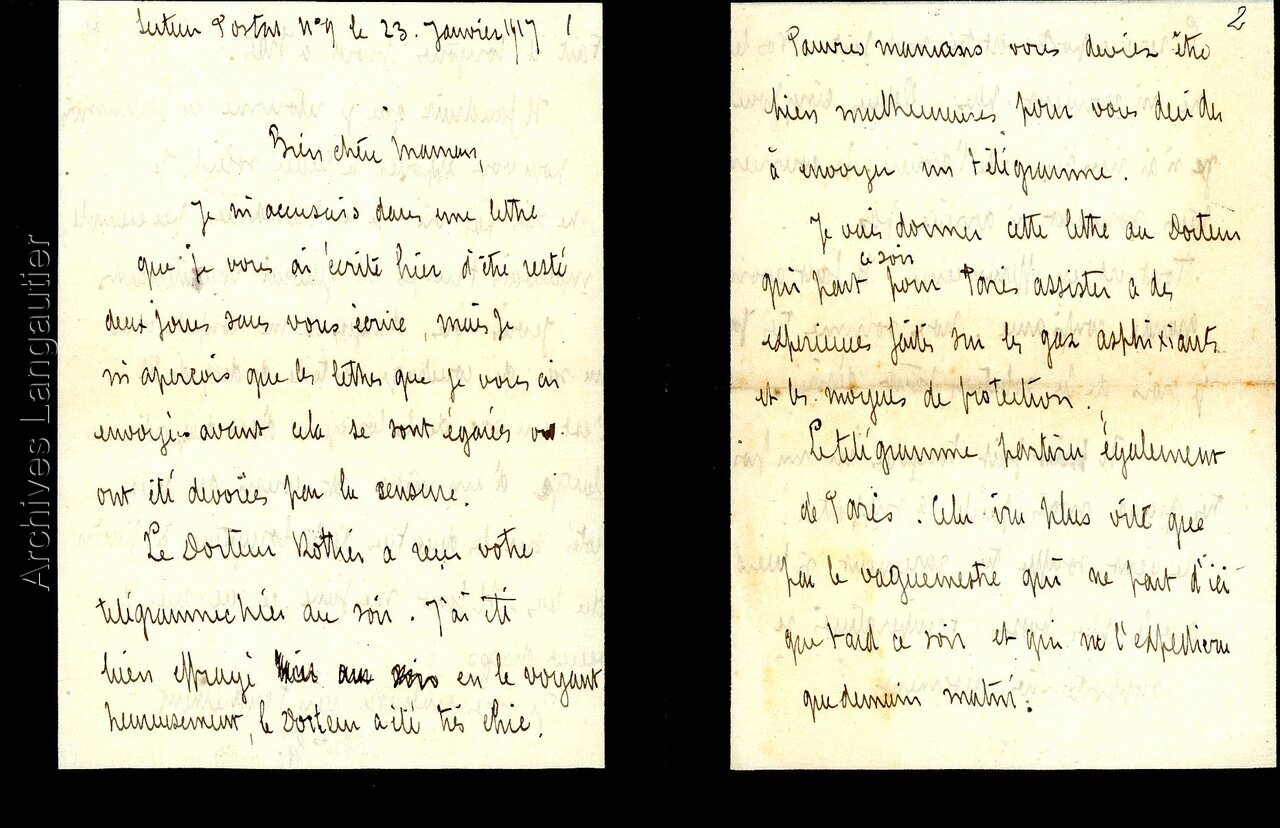 Secteur Postal N°9 le 23. Janvier 1917
1
Bien chère Maman,
Je m'accusais dans une lettre
que je vous ai écrite hier d'être resté
deux jours sans vous écrire, mais je
m'aperçois que les lettres que je vous ai
envoyées avant cela se sont égarées ou
ont été dévorées par la censure.
Le Docteur a reçu votre
télégramme hier au soir. J'ai été
bien effrayé hier au soir en le voyant
heureusement, le Docteur a été très chic.
2
Pauvres mamans vous deviez être
bien malheureuses pour vous décider
à envoyer un télégramme.
Je vais donner cette lettre au Docteur
ce soir
qui part pour Paris assister a des
expériences faites sur les gaz asphixiants
et les moyens de protection.
Le télégramme partira également
de Paris. Cela ira plus vite que
par le vaguemestre qui ne part d'ici
que tard ce soir et qui ne l'expediera
que demain matin.
Archives Langautier